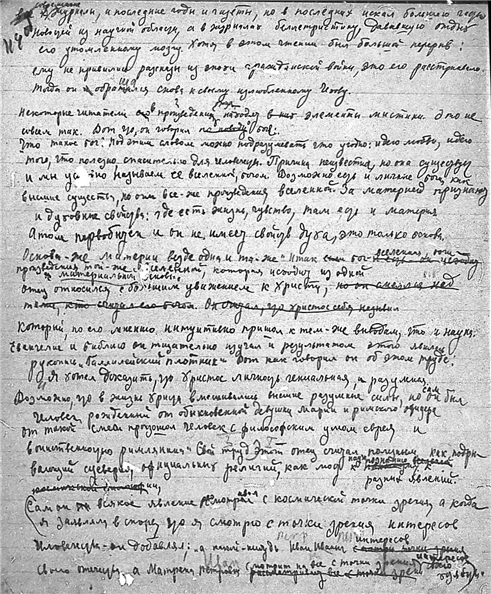 журналы, и последние годы и газеты, но в последних искал больше
новостей из научной области, а в журналах беллетристику, дававшую отдых
его утомленному мозгу. Хотя, в этом чтении был большой перерыв:
ему не нравились рассказы из эпохи гражданской войны, это его расстраивало.
Тогда он обратился снова к своему излюбленному Чехову.
Некоторые читатели его произведений находят элементы мистики. Это не
совсем так. Вот что, он говорил по поводу бога:
Что такое бог? Под этим словом можно подразумевать что угодно: идею любви, идею
того, что полезно, спасительно для человечества. Причина неизвестна, но она существует
и мы условно называем ее вселенной, богом. Возможно есть и личные боги, как
высшие существа, но они все-же произведения вселенной. За материей признавал
и духовные свойства: где есть жизнь, чувство, там есть и материя
Атом первобытен и он не имеет свойств духа, это только основа.
Основа-же материи везде одна и та-же. Итак бог
произведения той-же вселенной, которая исходит из одной
материальной основы.
Отец относился с большим уважением к Христу,
теже, кто считал его богом. Он сказал, что Христос себя называл
Который, по его мнению, интуитивно пришел к тем-же выводам, что и наука.
Евангелие и библию он тщательно изучал и результатом этого явилась
рукопись „Галилейский плотник". Вот как говорил он об этом труде:
„Я хотел доказать, что Христос личность гениальная и разумная,
Возможно, что в жизнь Христа вмешивались высшие разумные силы, но сам он был
человек, рожденный от обыкновенной девушки Марии и римского офицера
от такой смеси произошел человек с философским умом еврея и
воинственностью римлянина". Свой труд этот отец считал полезным, как подры-
вающий суеверия официальных религий как мост к познанию
разных явлений.
Сам он всякое явление рассматривал с космической точки зрения, а когда
я заявляла в споре, что я смотрю с точки зрения интересов
человечества он добавлял: „а какой-нибудь Иван Иваныч интересов
своего отечества, а Матрена Петровна смотрит на все с точки зрения интересов
своего